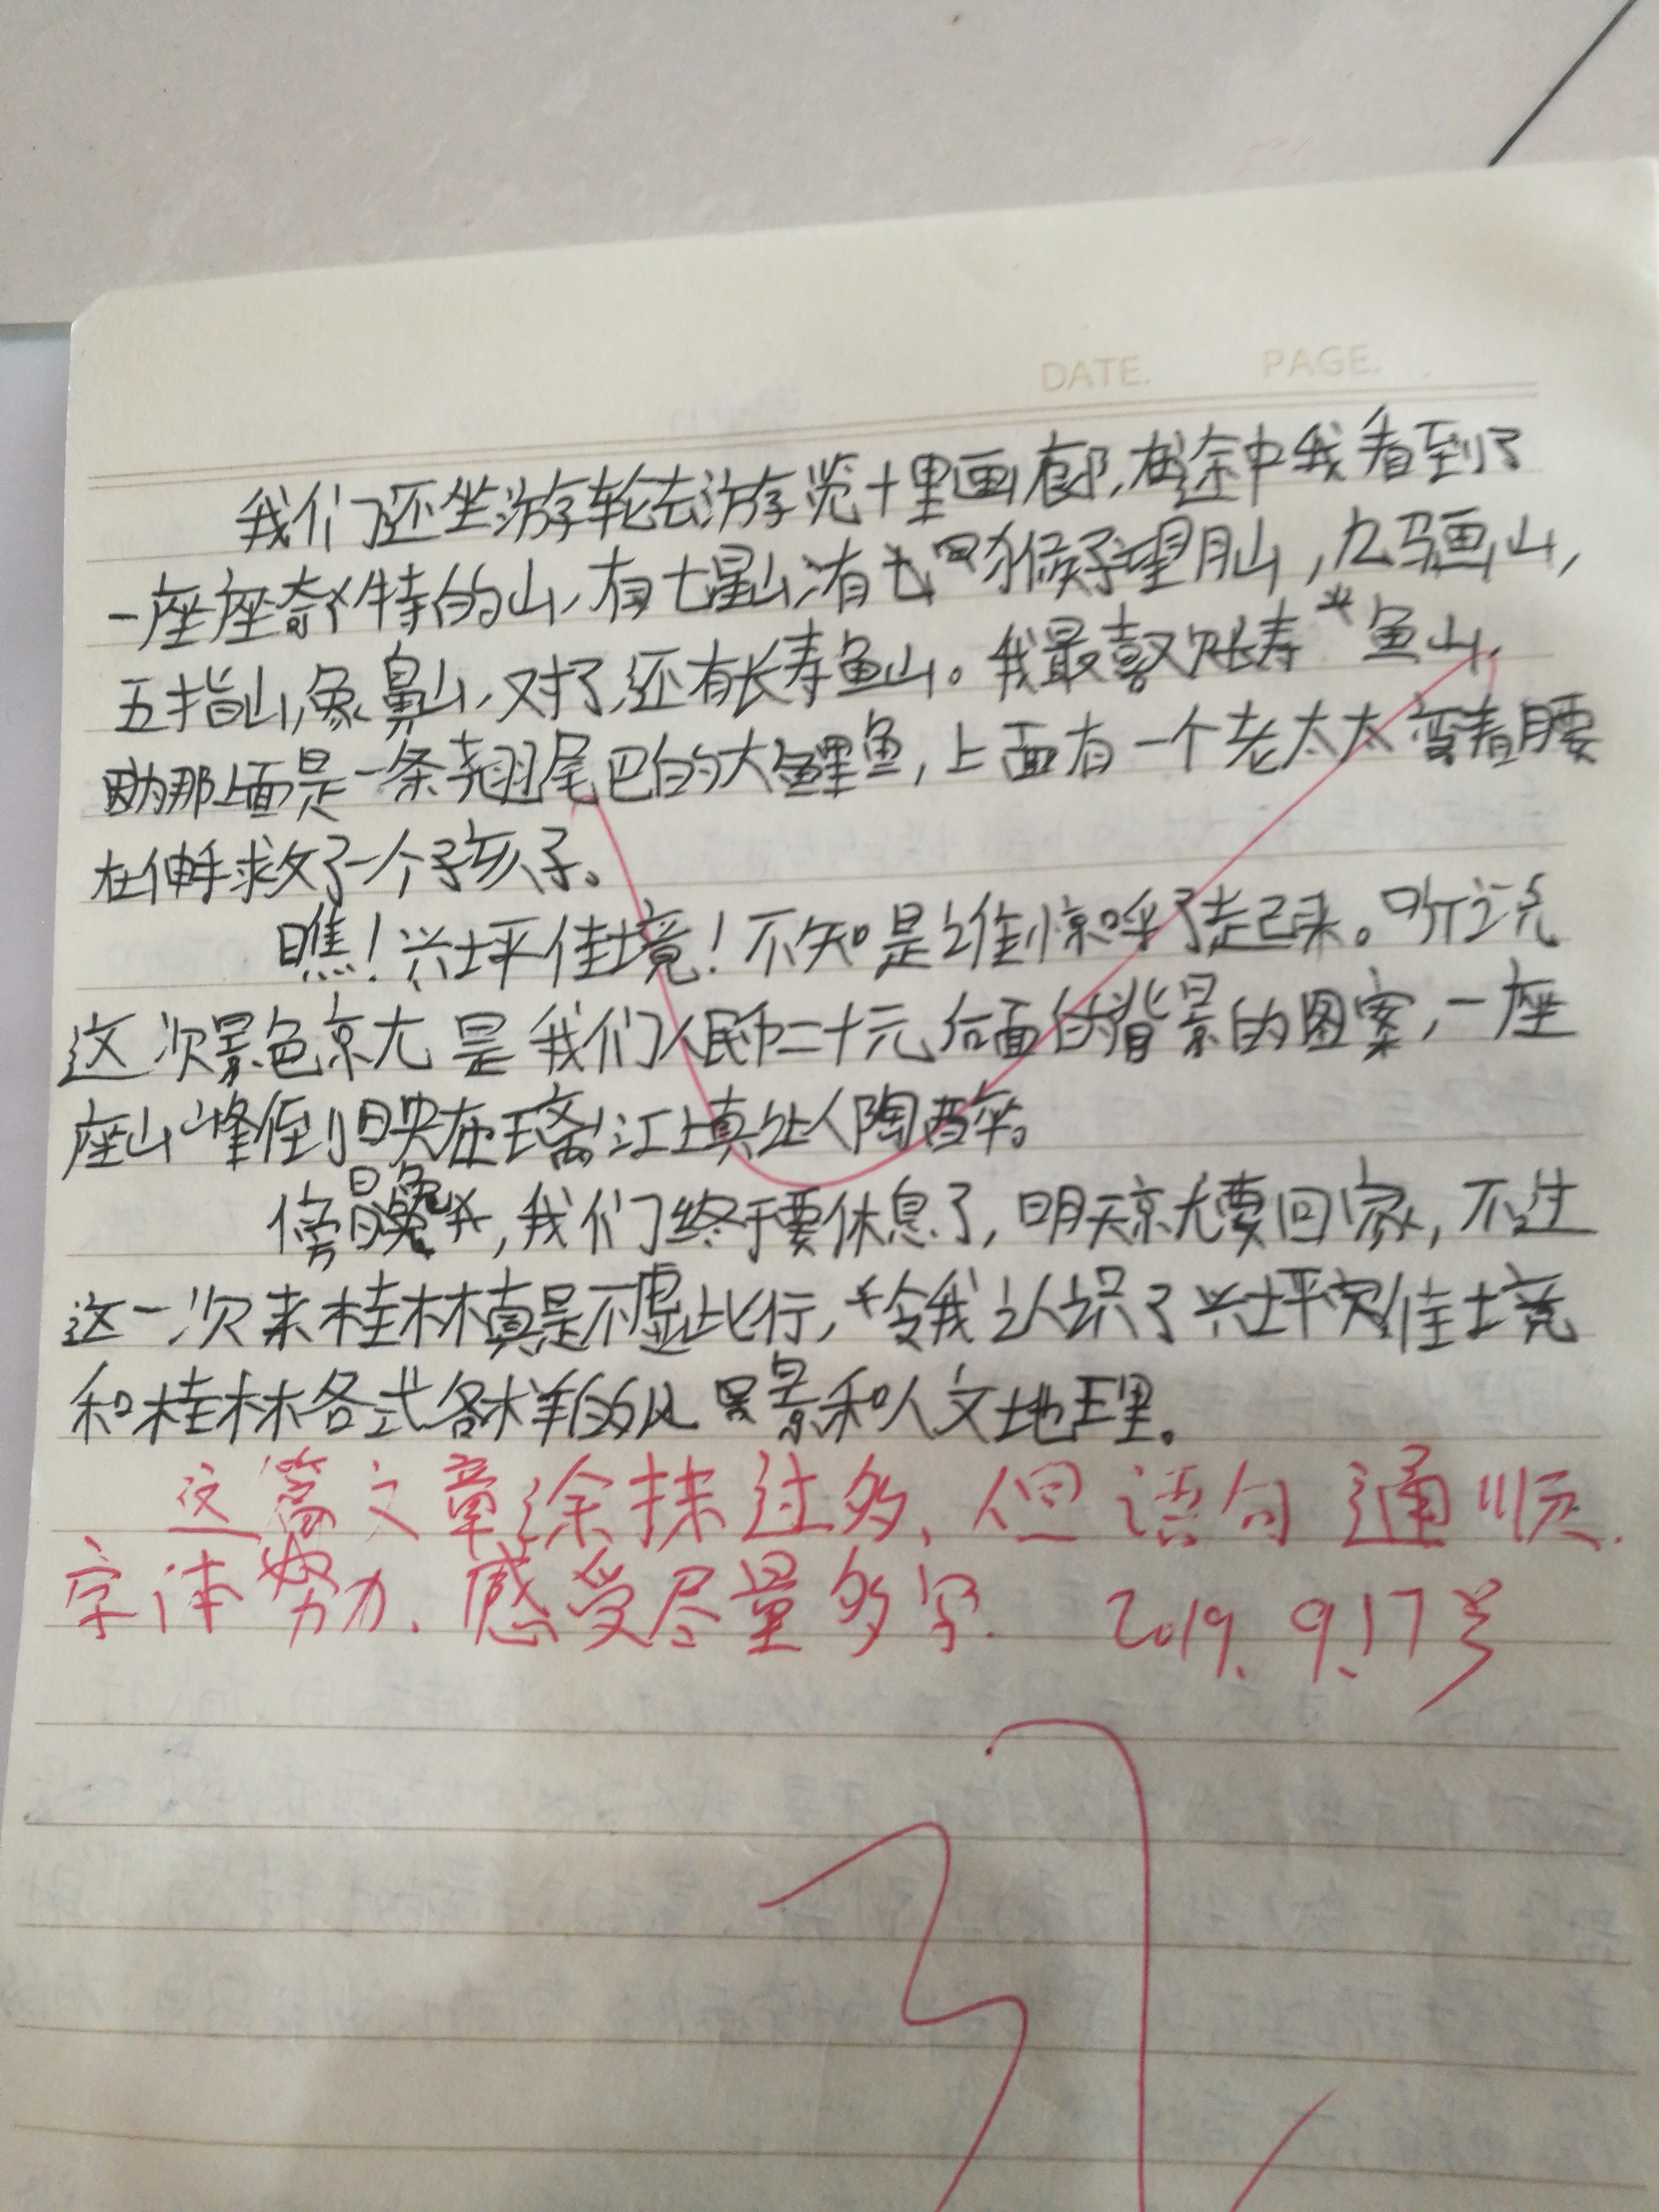 DATE. PAGE.
我们还坐游轮去游览十里画廊,在途中我看到了
一座座奇特的山,有七星山,有猴子望月山,九马画山,
五指山,象鼻山,对了,还有长寿鱼山。我最喜欢长寿鱼山,
因为那上面是一条翘尾巴的大鲤鱼,上面有一个老太太弯着腰
在伸手救了一个孩子。
瞧!兴坪佳境!不知是谁惊呼了起来。听说
这次景色就是我们人民币二十元后面的背景的图案,一座
座山峰倒映在璃江上真让人陶醉。
傍晚,我们终于要休息了,明天就要回家,不过
这一次来桂林真是不虚此行,令我认识了兴坪佳境
和桂林各式各样的风景和人文地理。
这篇文章涂抹过多,但语句通顺.
字体努力.感受尽量多写. 2019.9.17号